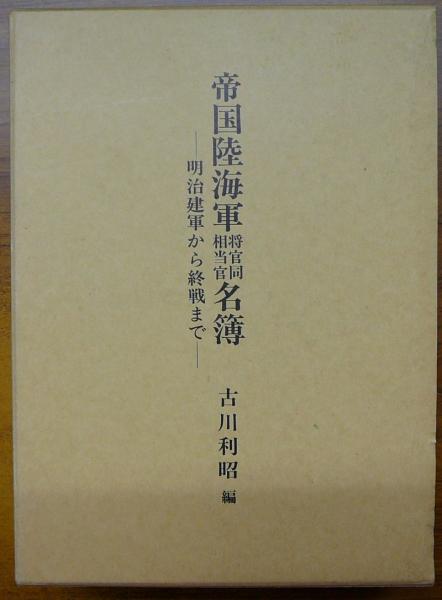 帝国陸海軍将官同相当官名簿
―明治建軍から終戦まで―
古川利昭 編